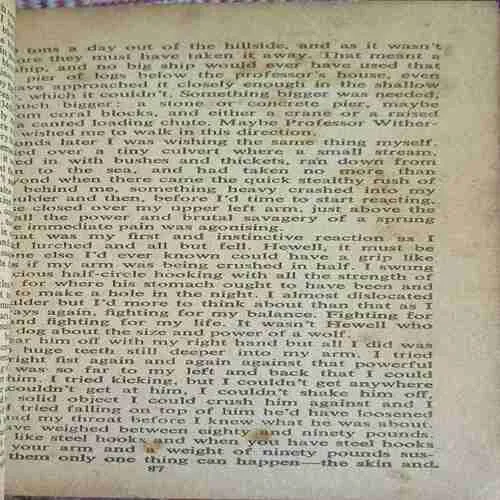 tons a day out of the hillside, and as it wasn't
ore they must have taken it away. That meant a
ship, and no big ship would ever have used that
pier of logs below the professor's house, even
ave approached it closely enough in the shallow
which it couldn't. Something bigger was needed,
much bigger: a stone or concrete pier, maybe
om coral blocks, and either a crane or a raised
a canted loading chute. Maybe Professor Wither-
wished me to walk in this direction.
onds later I was wishing the same thing myself.
ed over a tiny culvert where a small stream,
ed in with bushes and thickets, ran down from
n to the sea, and had taken no more than
yond when there came the quick stealthy rush of
behind me, something heavy crashed into my
oulder and then, before I'd time to start reacting,
e closed over my upper left arm, just above the
all the power and brutal savagery of a sprung
e immediate pain was agonising.
hat was my first and instinctive reaction as I
d lurched and all but fell. Hewell, it must be
one else I'd ever known could have a grip like
as if my arm was being crushed in half. I swung
cious half-circle hooking with all the strength of
for where his stomach ought to have been and
to make a hole in the night. I almost dislocated
ulder but I'd more to think about than that as I
ays again, fighting for my balance. Fighting for
nd fighting for my life. It wasn't Hewell who
dog about the size and power of a wolf.
ear him off with my right hand but all I did was
huge teeth still deeper into my arm. I tried
right fist again and again against that powerful
was so far to my left and back that I could
him. I tried kicking, but I couldn't get anywhere
couldn't get at him, I couldn't shake him off,
solid object I could crush him against and I
I tried falling on top of him he'd have loosened
nd my throat before I knew what he was about.
ave weighed between eighty and ninety pounds.
like steel hooks and when you have steel hooks
your arm and a weight of ninety pounds sus-
them only one thing can happen—the skin and
87